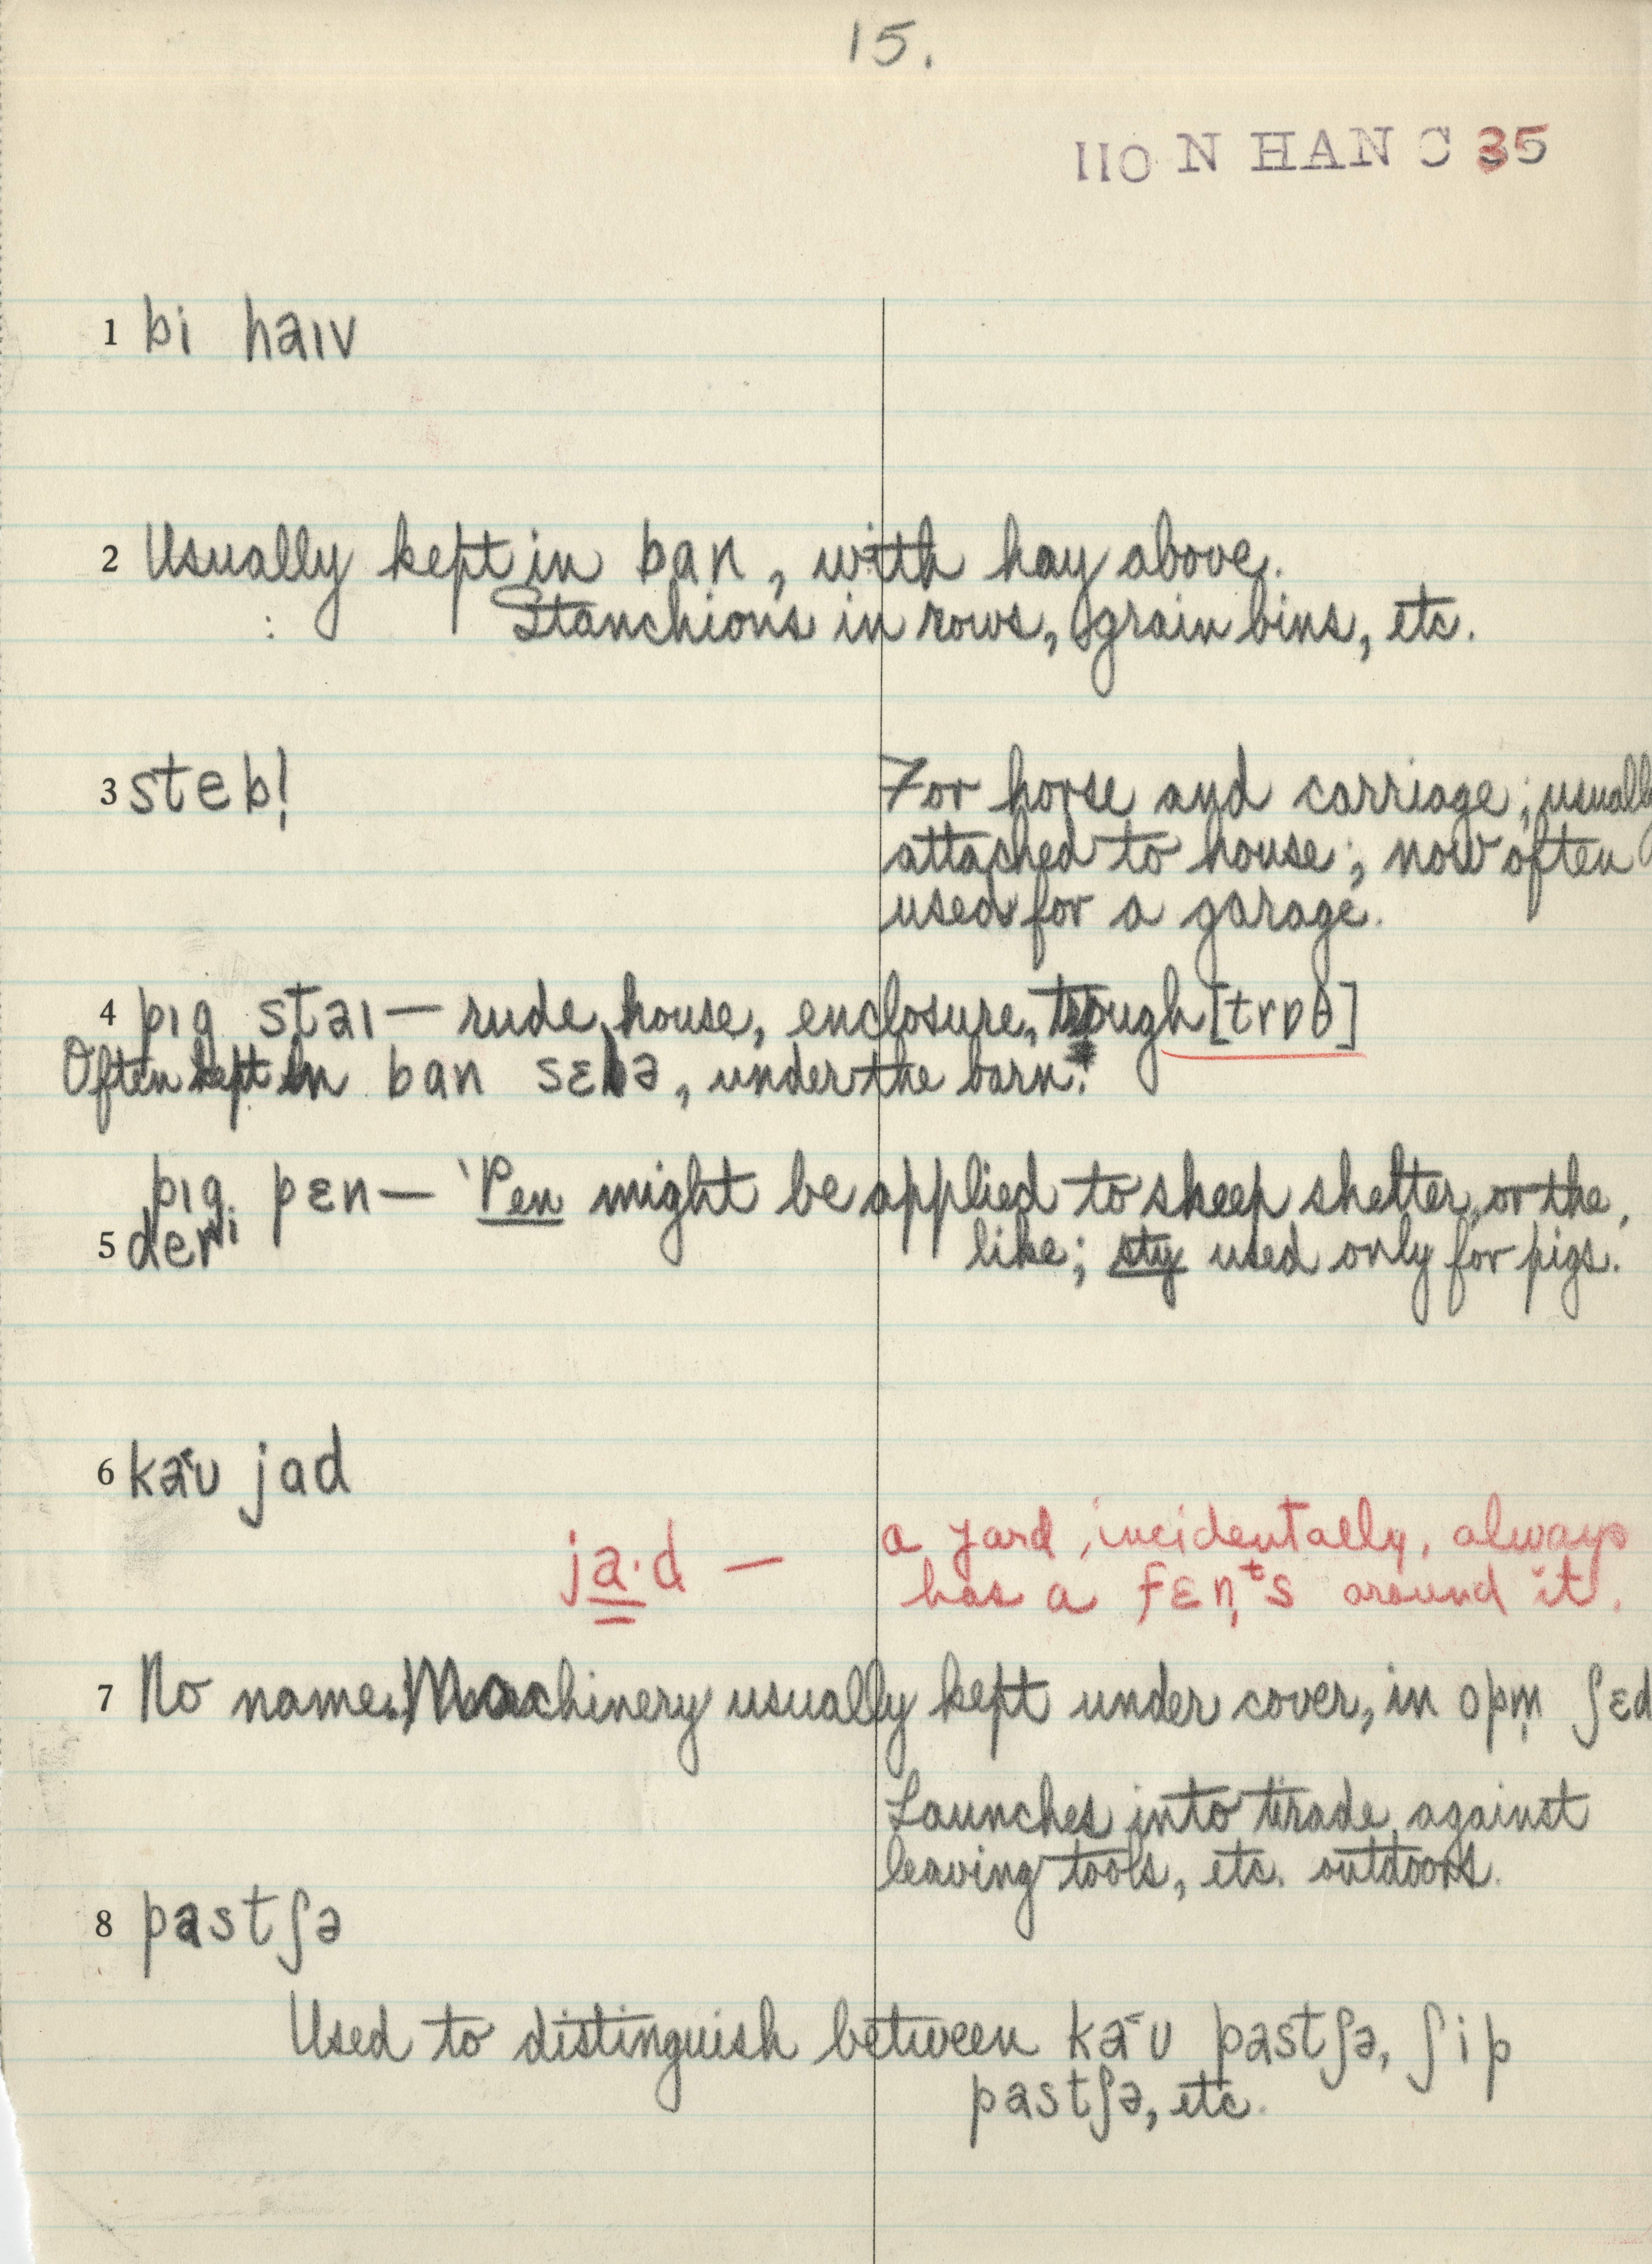 15.
110 N HAN C 35
1 bi haɪv
2 Usually kept in ban, with hay above.
Stanchions in rows, grain bins, etc.
3 stebl̩
For horse and carriage; usually
attached to house; now often
used for a garage.
4 pɪg staɪ — rude house, enclosure, trough [trɒθ]
Often kept in ban sɛlə, under the barn.
pɪg pɛn — 'Pen might be applied to sheep shelter, or the
like; sty used only for pigs.
5 deri
6 kaʊ jad
ja·d — a yard, incidentally, always
has a fɛnᵗs around it.
7 No name. Machinery usually kept under cover, in opm̩ ʃɛd
Launches into tirade against
leaving tools, etc. outdoors.
8 pastʃə
Used to distinguish between kaʊ pastʃə, ʃip
pastʃə, etc.